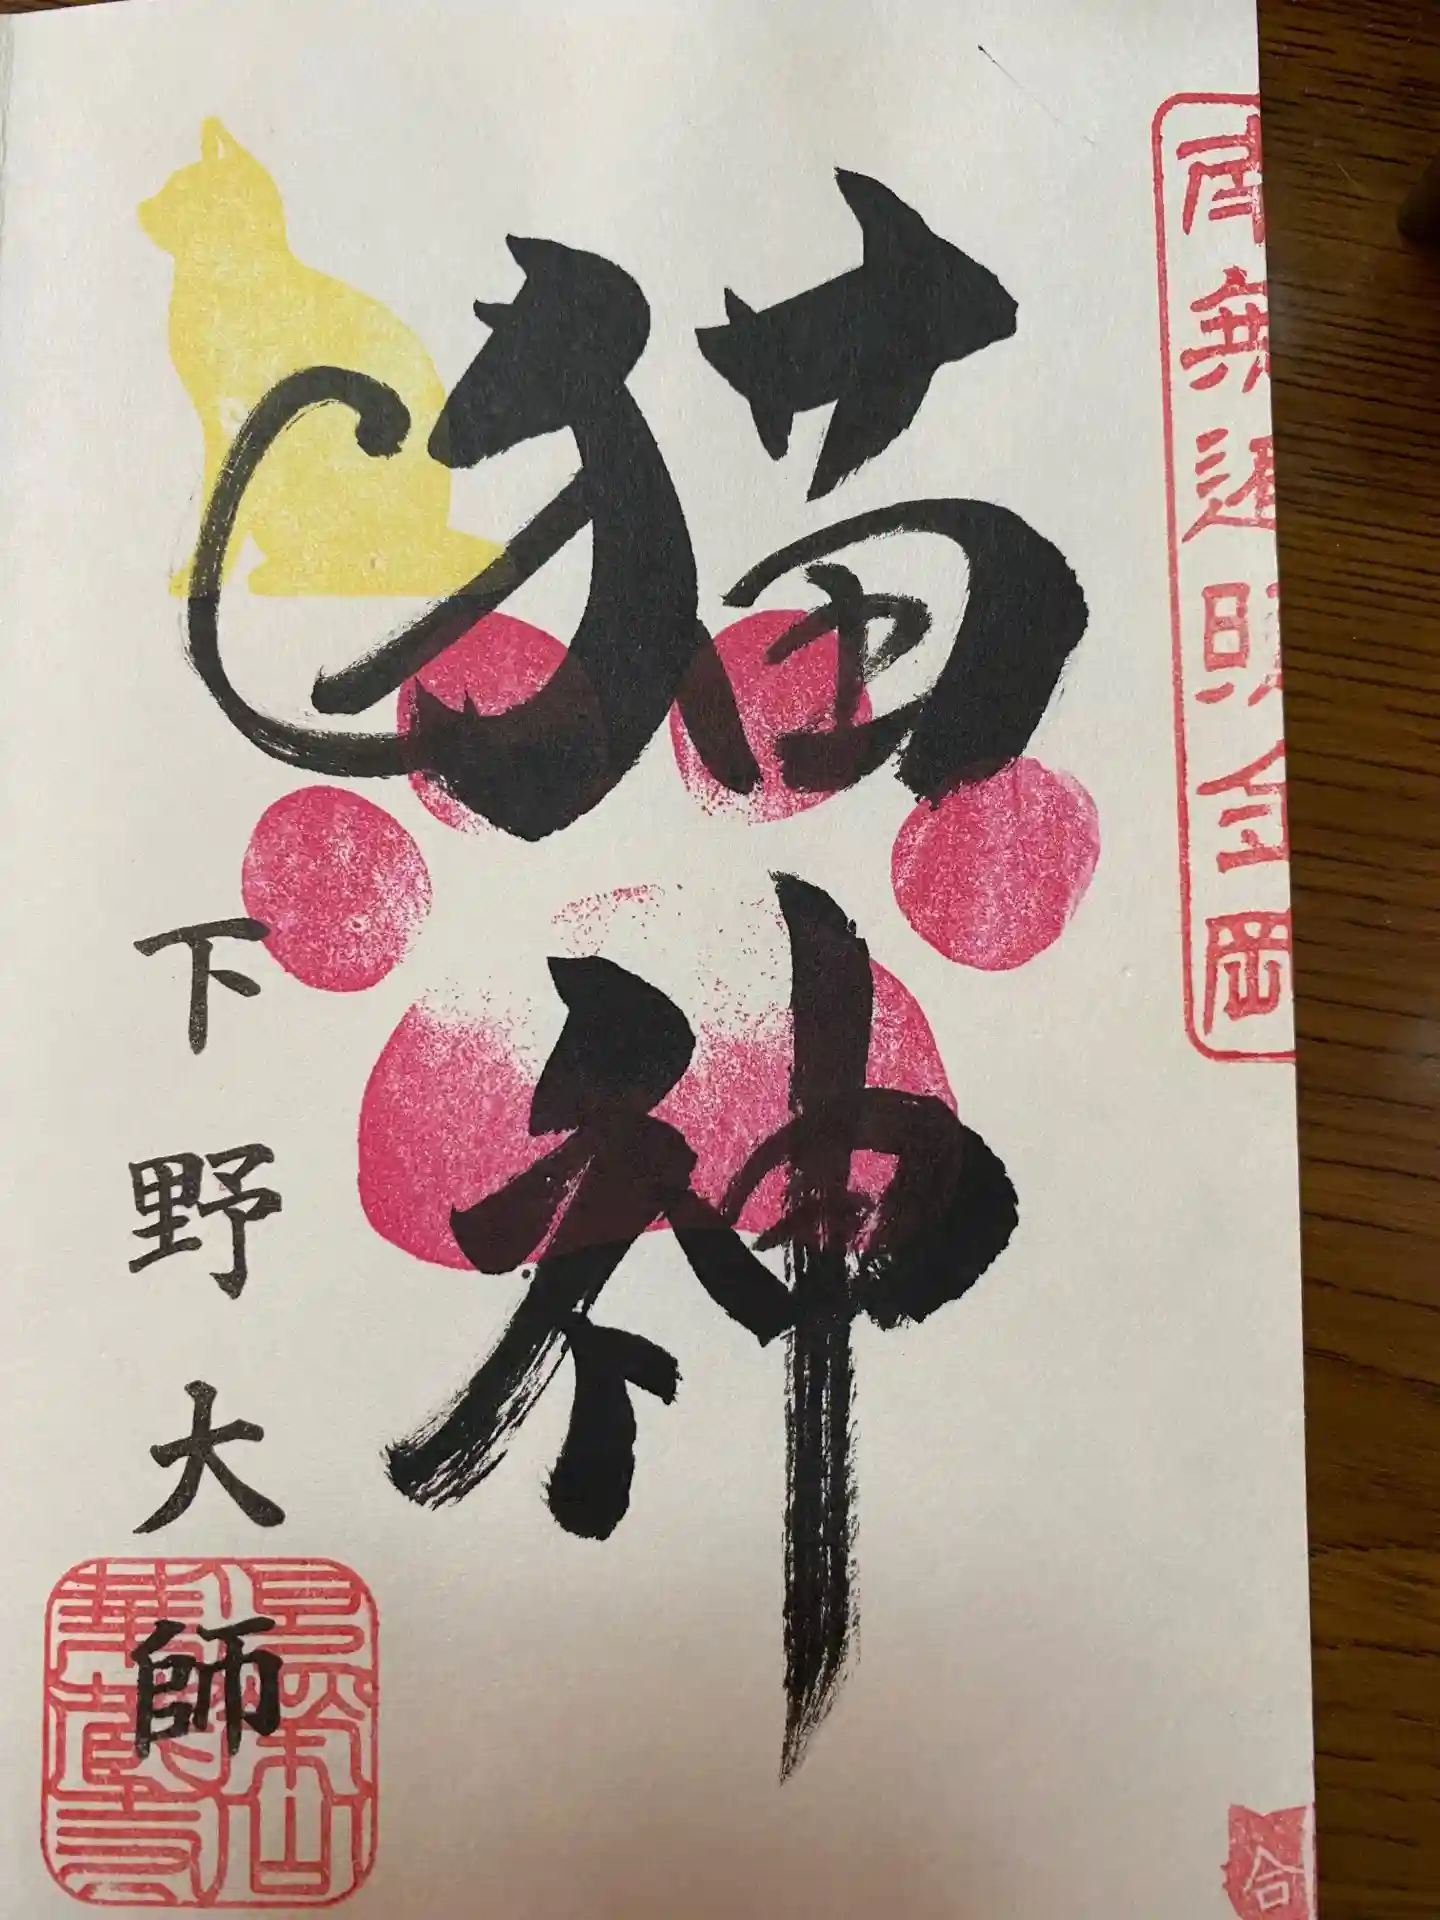 南無遍照金剛
猫神
下野大師
合